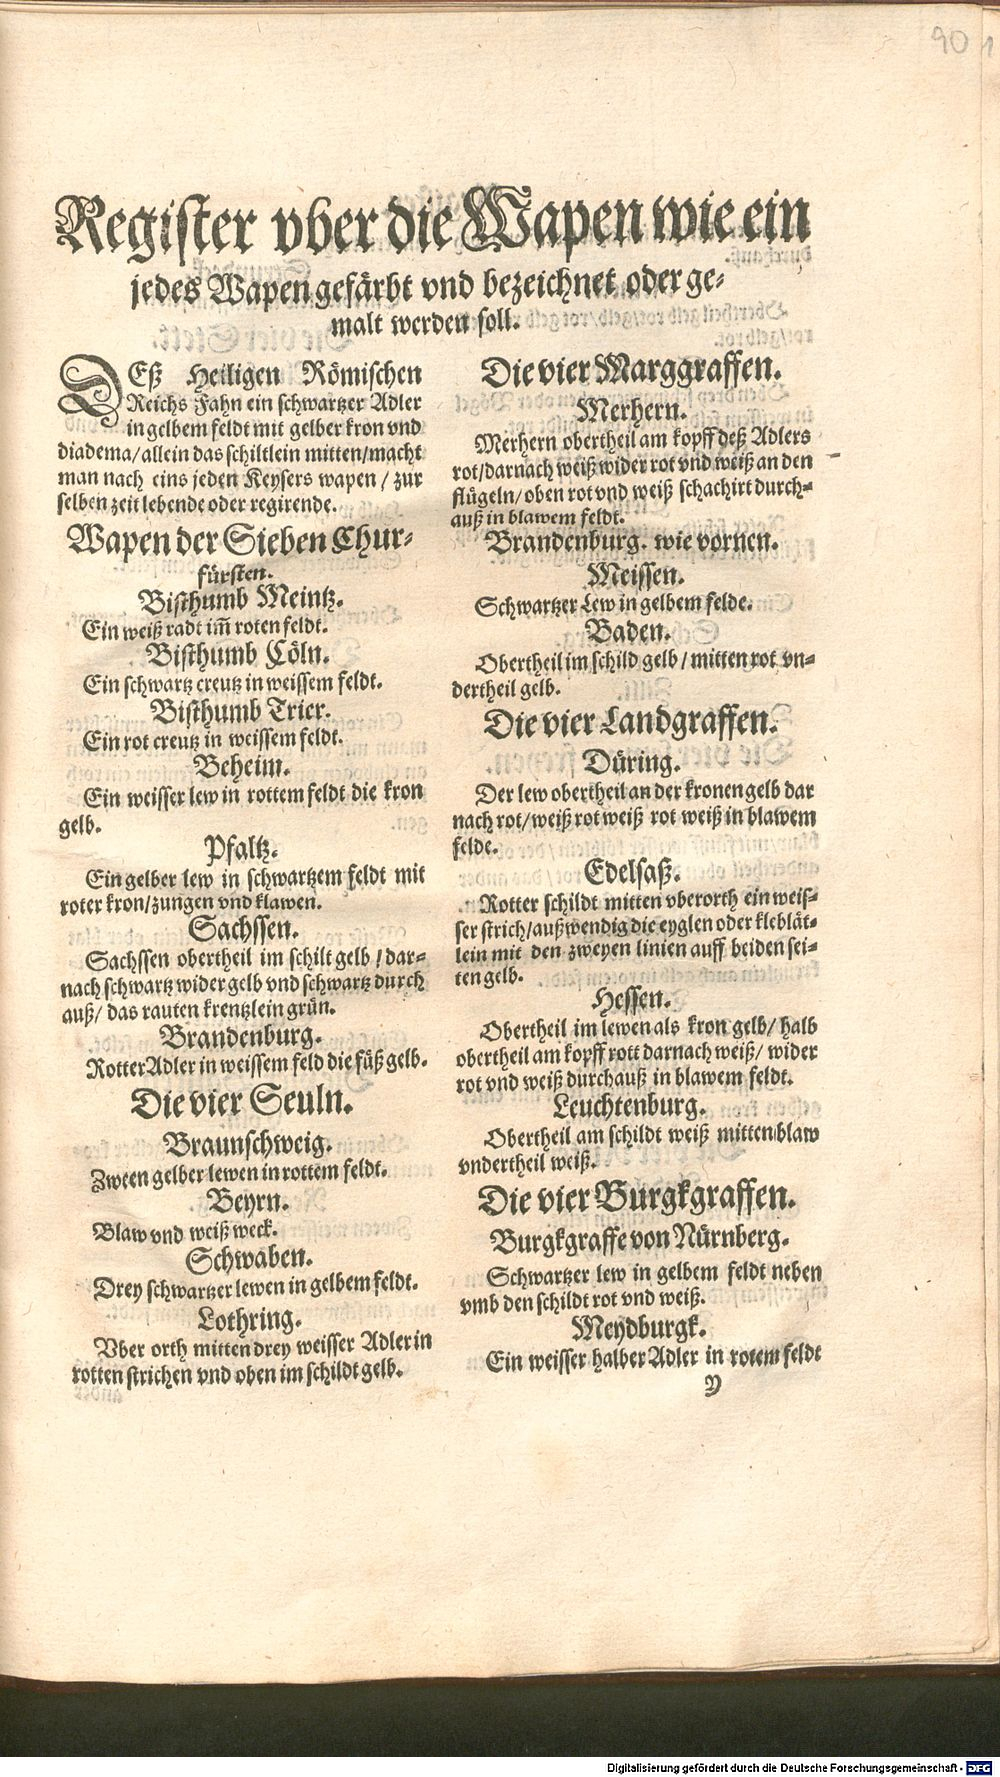 90
1
Register vber die Wapen wie ein
jedes Wapen gefärbt vnd bezeichnet oder ge-
malt werden soll.
DEß Heiligen Römischen
Reichs Fahn ein schwartzer Adler
in gelbem feldt mit gelber kron vnd
diadema/allein das schiltlein mitten/macht
man nach eins jeden Keysers wapen / zur
selben zeit lebende oder regirende.
Wapen der Sieben Chur-
fürsten.
Bisthumb Meintz.
Ein weiß radt im̃ roten feldt.
Bisthumb Cöln.
Ein schwartz creutz in weissem feldt.
Bisthumb Trier.
Ein rot creutz in weissem feldt.
Beheim.
Ein weisser lew in rottem feldt die kron
gelb.
Pfaltz.
Ein gelber lew in schwartzem feldt mit
roter kron/zungen vnd klawen.
Sachssen.
Sachssen obertheil im schilt gelb / dar-
nach schwartz wider gelb vnd schwartz durch
auß/ das rauten krentzlein grün.
Brandenburg.
Rotter Adler in weissem feld die füß gelb.
Die vier Seuln.
Braunschweig.
Zween gelber lewen in rottem feldt.
Beyrn.
Blaw vnd weiß weck.
Schwaben.
Drey schwartzer lewen in gelbem feldt.
Lothring.
Vber orth mitten drey weisser Adler in
rotten strichen vnd oben im schildt gelb.
Die vier Marggraffen.
Merhern.
Merhern obertheil am kopff deß Adlers
rot/darnach weiß wider rot vnd weiß an den
flügeln/ oben rot vnd weiß schachirt durch-
auß in blawem feldt.
Brandenburg. wie vornen.
Meissen.
Schwartzer Lew in gelbem felde.
Baden.
Obertheil im schild gelb / mitten rot vn-
dertheil gelb.
Die vier Landgraffen.
Düring.
Der lew obertheil an der kronen gelb dar
nach rot/ weiß rot weiß rot weiß in blawem
felde.
Edelsaß.
Rotter schildt mitten vberorth ein weis-
ser strich/außwendig die eyglen oder kleblät-
lein mit den zweyen linien auff beiden sei-
ten gelb.
Hessen.
Obertheil im lewen als kron gelb/ halb
obertheil am kopff rott darnach weiß/ wider
rot vnd weiß durchauß in blawem feldt.
Leuchtenburg.
Obertheil am schildt weiß mitten blaw
vndertheil weiß.
Die vier Burgkgraffen.
Burgkgraffe von Nürnberg.
Schwartzer lew in gelbem feldt neben
vmb den schildt rot vnd weiß.
Meydburgk.
Ein weisser halber Adler in rotem feldt
Y
Digitalisierung gefördert durch die Deutsche Forschungsgemeinschaft - DFG